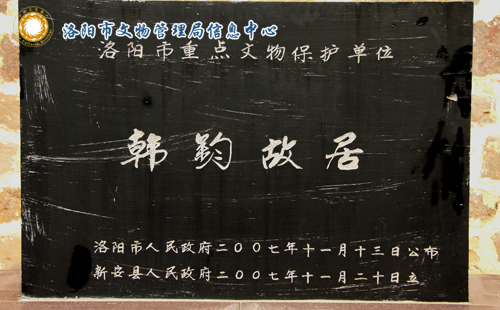 洛阳市文物管理局信息中心
洛阳市重点文物保护单位
韩鈞故居
洛阳市人民政府二〇〇七年十一月十三日公布
新安县人民政府二〇〇七年十一月二十日立